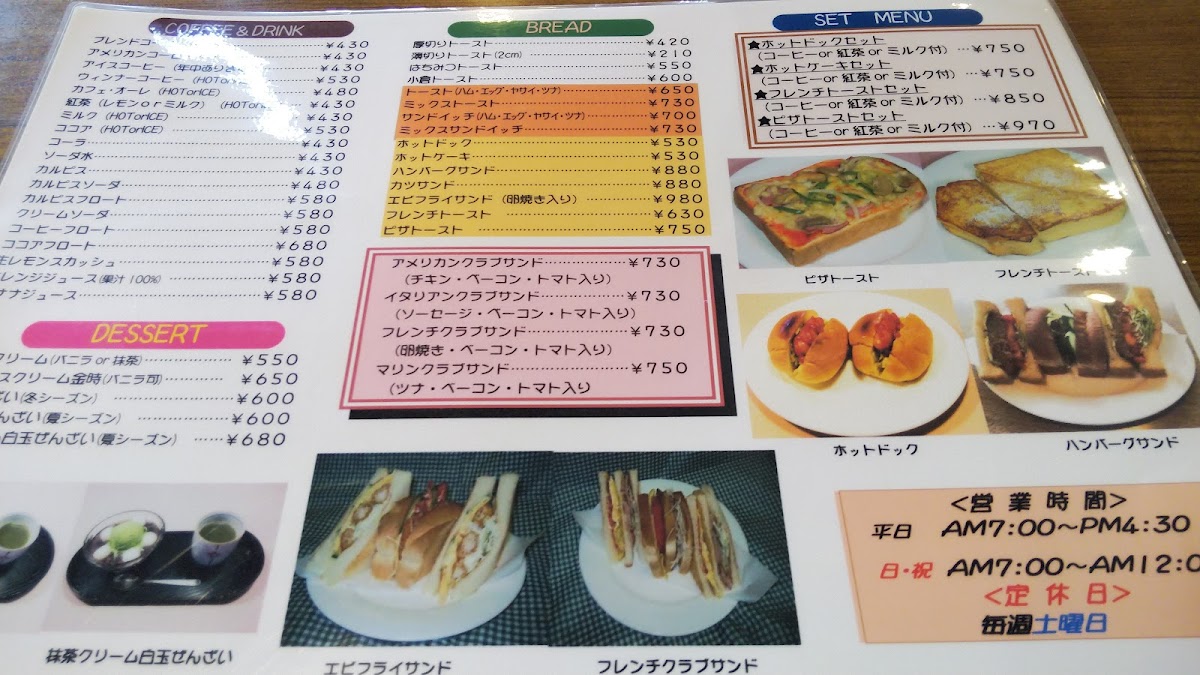 COFFEE & DRINK
ブレンドコーヒー ¥430
アメリカンコーヒー ¥430
アイスコーヒー (年中あります) ¥430
ウィンナーコーヒー (HOTorICE) ¥530
カフェ・オーレ (HOTorICE) ¥480
紅茶 (レモンorミルク) (HOTorICE) ¥430
ミルク (HOTorICE) ¥430
ココア (HOTorICE) ¥530
コーラ ¥430
ソーダ水 ¥430
カルピス ¥430
カルピスソーダ ¥480
カルピスフロート ¥580
クリームソーダ ¥580
コーヒーフロート ¥580
ココアフロート ¥680
生レモンスカッシュ ¥580
レンジジュース(果汁100%) ¥580
ナナジュース ¥580
DESSERT
クリーム(バニラor抹茶) ¥550
スクリーム金時(バニラ可) ¥650
ざい(冬シーズン) ¥600
んざい(夏シーズン) ¥600
白玉ぜんざい(夏シーズン) ¥680
抹茶クリーム白玉ぜんざい
BREAD
厚切りトースト ¥420
薄切りトースト(2cm) ¥210
はちみつトースト ¥550
小倉トースト ¥600
トースト(ハム・エッグ・ヤサイ・ツナ) ¥650
ミックストースト ¥730
サンドイッチ(ハム・エッグ・ヤサイ・ツナ) ¥700
ミックスサンドイッチ ¥730
ホットドック ¥530
ホットケーキ ¥530
ハンバーグサンド ¥880
カツサンド ¥880
エビフライサンド (卵焼き入り) ¥980
フレンチトースト ¥630
ピザトースト ¥750
アメリカンクラブサンド ¥730
(チキン・ベーコン・トマト入り)
イタリアンクラブサンド ¥730
(ソーセージ・ベーコン・トマト入り)
フレンチクラブサンド ¥730
(卵焼き・ベーコン・トマト入り)
マリンクラブサンド ¥750
(ツナ・ベーコン・トマト入り
エビフライサンド
フレンチクラブサンド
SET MENU
★ホットドックセット
(コーヒーor 紅茶 or ミルク付) …¥750
★ホットケーキセット
(コーヒーor 紅茶 or ミルク付) …¥750
★フレンチトーストセット
(コーヒーor 紅茶 or ミルク付) …¥850
★ピザトーストセット
(コーヒーor 紅茶 or ミルク付) …¥970
ピザトースト
フレンチトースト
ホットドック
ハンバーグサンド
<営業時間>
平日 AM7:00～PM4:30
日・祝 AM7:00～AM12:0
<定休日>
毎週土曜日